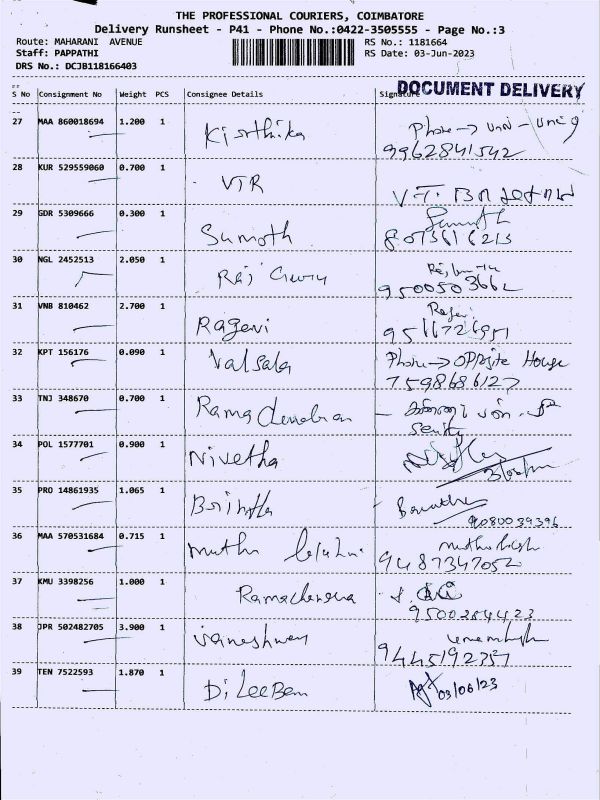 THE PROFESSIONAL COURIERS, COIMBATORE
Delivery Runsheet - P41 - Phone No.:0422-3505555 - Page No.:3
Route: MAHARANI AVENUE RS No.: 1181664
Staff: PAPPATHI RS Date: 03-Jun-2023
DRS No.: DCJB118166403
DOCUMENT DELIVERY
S No Consignment No Weight PCS Consignee Details Signature
27 MAA 860018694 1.200 1 Kirthika Phone →
9962841542
28 KUR 529559060 0.700 1 VTR V.T.
29 GDR 5309666 0.300 1 Sumoth Sumoth
8073616213
30 NGL 2452513 2.050 1 Raj
9500503662
31 VNB 810462 2.700 1 Rageni
9511726951
32 KPT 156176 0.090 1 Valsala Phone → Opposite House
7598686127
33 TNJ 348670 0.700 1 Rama
34 POL 1577701 0.900 1 Nivetha
35 PRO 14861935 1.065 1
9080039396
36 MAA 570531684 0.715 1 muthu
9487347052
37 KMU 3398256 1.000 1
9500284423
38 JPR 502482705 3.900 1
9445192357
39 TEN 7522593 1.870 1 DiLeeBan 03/06/23